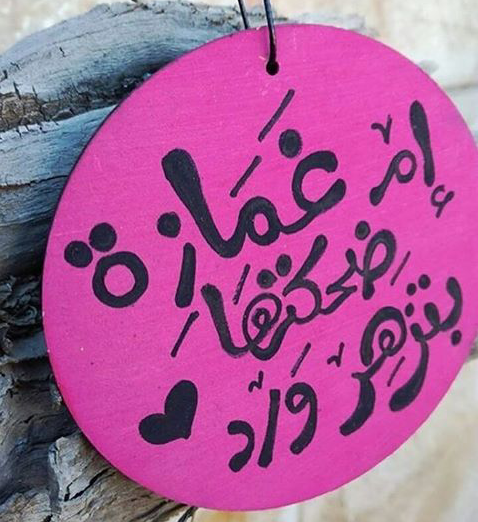 إِمّ غَمَّازة
ضحكتها
بتزهر وَلاّد